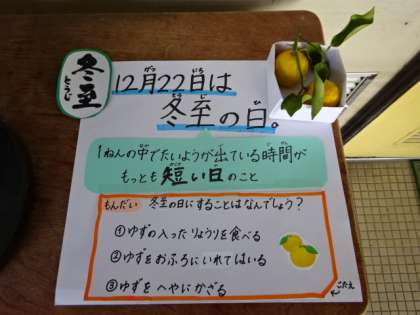 冬至
とうじ
12月22日は
冬至の日。
1ねんの中でたいようが出ている時間が
もっとも短い日のこと
もんだい 冬至の日にすることはなんでしょう?
①ゆずの入ったりょうりを食べる
②ゆずをおふろにいれてはいる
③ゆずをへやにかざる
こたえ